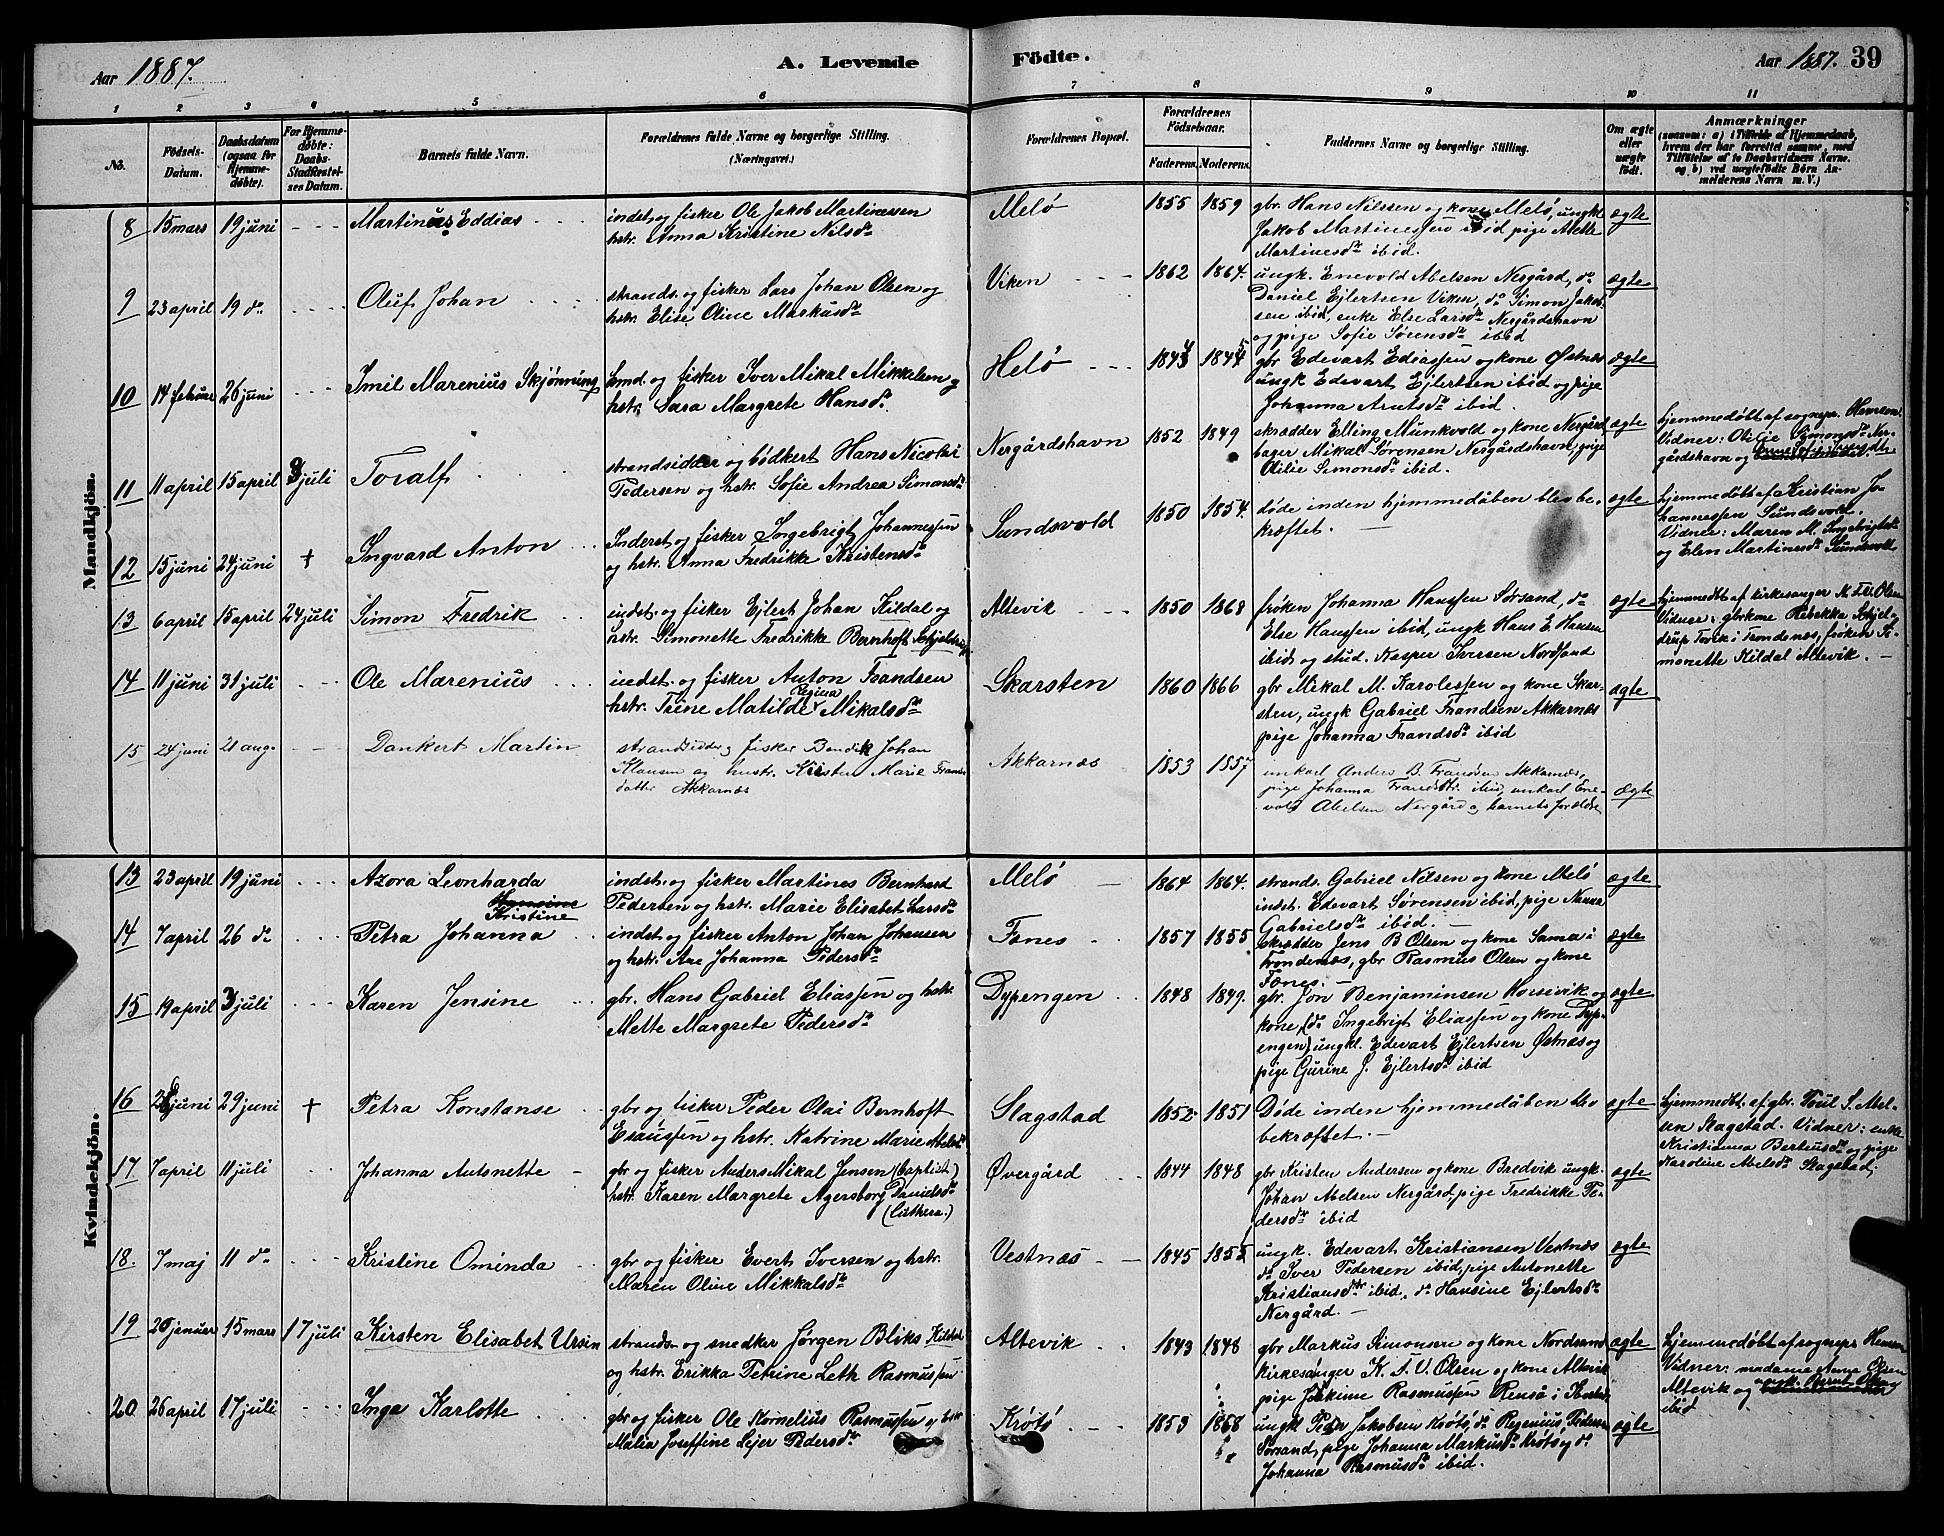 Aar 1887.
A. Levende
Födte.
Aar 1887. 39
1 2 3 4 5 6 7 8 9 10 11
No.
Födsels-Datum.
Daabsdatum (ogsaa for Hjemme-döbte).
For Hjemme-döbte: Daabs-Stadfæstel-ses Datum.
Barnets fulde Navn.
Forældrenes fulde Navne og borgerlige Stilling.
(Næringsvei.)
Forældrenes Bopæl.
Forældrenes Födselsaar.
Faderens. Moderens.
Faddernes Navne og borgerlige Stilling.
Om ægte eller uægte födt.
Anmærkninger
(saasom: a) i Tilfælde af Hjemmedaab,
hvem der har forrettet samme, med
Tilföielse af to Daabsvidners Navne.
og b) ved uægtefödte Börn An-
melderens Navn m. V.)
Mandkjön.
8 15 mars 19 juni - - - Martinus Eddias
indst. og fisker Ole Jakob Martinussen
hstr. Anna Kristine Nilsdr
Melø 1855 1859
gbr. Hans Nilssen og kone Melø, ungk
Jakob Martinessen ibid pige Alette
Martinesdr ibid.
ægte
9 23 april 19 do Oluf Johan
strands. og fisker Lars Johan Olsen og
hstr. Elise Oline Markusdr
Viken 1862 1864.
ungk. Enevold Abelsen Nergård, do
Daniel Ejlertsen Viken, do Simon Jakob-
sen ibid, enke Else Larsdr Nergårdshavn
og pige Sofie Sørensdr ibid
ægte
10 14 februar 26 juni Imil Marenius Skjønning
og fisker Iver Mikal Mikkelsen og
hstr. Sara Margrete Hansdr
Helø 1844 1845
gbr Edevart Ediassen og kone Østnæs
ungk Edevart Ejlertsen ibid og pige
Johanna Arntsdr ibid.
ægte
11 11 april 15 april 3 juli Toralf
strandsidder og bødkert Hans Nicolai
Pedersen og hstr. Sofie Andrea Simonsdr
Nergårdshavn 1852 1849
skrædder Elling Munkvold og kone Nergård
bager Mikal Sørensen Nergårdshavn, pige
Otilie Simonsdr ibid.
ægte
hjemmedøbt af sognepr. Hensen.
Vidner: Otilie Simonsdr Ner-
gårdshavn og
12 15 juni 24 juni + Ingvard Anton
Inderst og fisker Ingebrigt Johannessen
og hstr. Anna Fredrikke Kristensdr
Sundsvold 1850 1854.
døde inden hjemmedåben blev be-
kræftet.
ægte
hjemmedøbt af Kristian Jo-
hannessen Sundsvold.
Vidner: Maren M. Ingebrigtsdr
og Elen Martinesdr Sundsvold
13 6 april 15 april 24 juli Simon Fredrik
indst. og fisker Ejlert Johan Kildal og
hstr. Simonette Fredrikke Bernhoft Schjeldrup
Altevik 1850 1868
frøken Johanna Hanssen Sørsand, do
Else Hanssen ibid, ungk Hans E. Hansen
ibid og stud. Kasper Iversen Nordsand
ægte
hjemmedøbt af kirkesanger K. I. V. Olsen
Vidner: gbrkone Rebekka Schjel-
drup Tovik i Trondenæs, frøken Si-
monette Kildal Altevik.
14 11 juni 31 juli Ole Marenius
indst. og fisker Anton Frandsen
hstr. Trine Matilde Regina Mikalsdr
Skarsten 1860 1866
gbr Mikal M. Karolessen og kone Skar-
sten, ungk Gabriel Frandsen Akkarnæs
pige Johanna Frandsdr ibid
ægte
15 24 juni 21 aug. Dankert Martin
strandsidder og fisker Bendik Johan
Klausen og hustr. Kirsten Marie Frants-
datter Akkarnæs
Akkarnæs 1853 1857
unkarl Anders B. Fransen Akkarnæs,
pige Johanna Frandsdtr ibid, unkarl Ene-
vold Abelsen Nergård og barnets forældre
ægte
Kvindekjön.
13 23 april 19 juni Azora Leonharda
Hansine
Kristine
indst. og fisker Martines Bernhard
Pedersen og hstr. Marie Elisabet Larsdr
Melø 1864 1864.
strands. Gabriel Nilsen og kone Melø
indst. Edevart Sørensen ibid, pige Nanna
Gabrielsdr ibid.
ægte
14 7 april 26 do Petra Johanna
indst. og fisker Anton Johan Johansen
og hstr. Ane Johanna Pedersdr
Fønes 1857 1855
skrædder Jens B Olsen og kone Sama i
Trondenæs, gbr Rasmus Olsen og kone
Fønes.
ægte
15 19 april 3 juli Karen Jensine
gbr. Hans Gabriel Eliassen og hstr.
Mette Margrete Pedersdr
Dypengen 1848 1849.
gbr. Jon Benjaminsen Horsevik og
kone, (do Ingebrigt Eliassen og kone Dyp-
engen) ungkl. Edevart Ejlertsen Østnæs og
pige Gurine J. Ejlertsdr ibid
ægte
16 28 juni 29 juni + Petra Konstanse
gbr og fisker Peder Olai Bernhoft
Esaiassen og hstr. Katrine Marie Abelsdr
Slagstad 1852 1851
Døde inden hjemmedåben blev
bekræftet.
ægte
hjemmedbt. af gbr. Poul S. Abel-
sen Slagstad. Vidner: enke
Kristianna Berteusdr og pige
Karoline Abelsdr Slagstad.
17 7 april 11 juli Johanna Antonette
gbr og fisker Anders Mikal Jensen (baptist)
hstr. Karen Margrete Agersborg Danielsdr
(luthera.)
Øvergård 1844 1848
gbr Kristen Andersen og kone Bredvik ungk.
Johan Abelsen Nergård, pige Fredrikke Pe-
dersdr ibid
ægte
18. 7 maj 11 do Kristine Ominda
gbr og fisker Evert Iversen og hstr.
Maren Oline Mikkalsdr
Vestnæs 1845 1855
ungk. Edevart Kristiansen Vestnæs
do Iver Pedersen ibid, pige Antonette
Kristiansdtr ibid, do Hansine Ejlertsdr
Nergård.
ægte
19 20 januar 15 mars 17 juli Kirsten Elisabet Ursin
strands. og snedker Jørgen Bliks Kildal
og hstr. Erikka Petrine Leth Rasmussen
Altevik 1843 1848
gbr Markus Simonsen og kone Nordsand
kirkesånger K. I. V. Olsen og kone Altevik
pige Jokine Rasmussen
ægte
hjemmedøbt af sognepr Hensen
Vidner: madame Anne Olsen
Altevik og
ibid
20 26 april 17 juli Inga Karlotte
gbr og fisker Ole Kornelius Rasmussen og hstr
Malia Joseffine Lejer Pedersdr
Krøtø 1853 1858
ungk Peder Jakobsen Krøtø, do Regenius Pedersen
Sørsand, pige Johanna Markusdr Krøtø og do
Johanna Rasmusdr ibid.
ægte